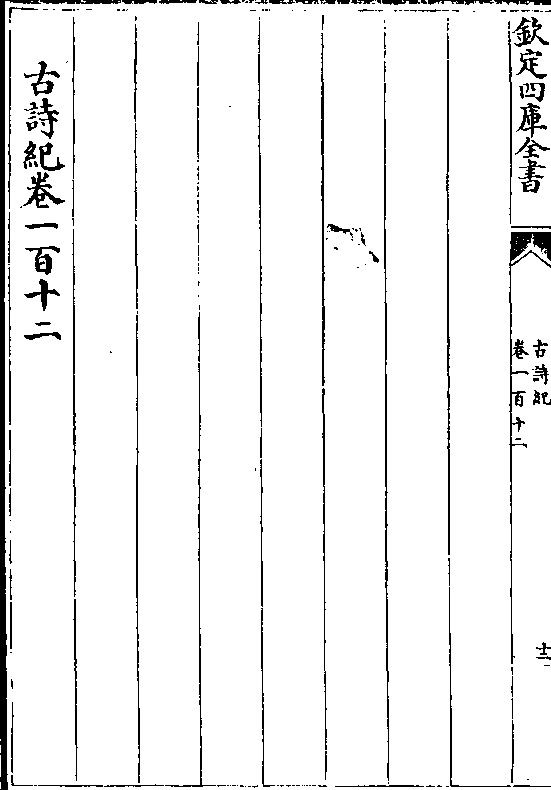 欽定四庫全書
古詩紀
卷一百十二
古詩紀卷一百十二